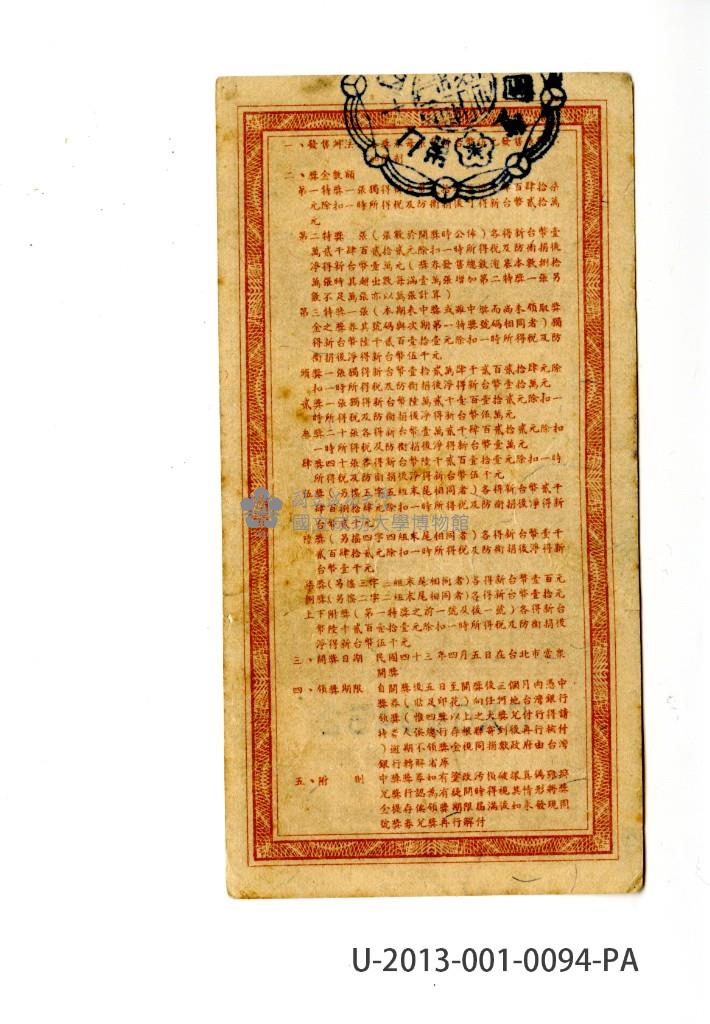 一、發售辦法
二、獎金數額
第一特獎一張獨得
元除扣一時所得稅及防衛捐後可得新台幣貳拾萬
元
第二特獎 張(張數於開獎時公佈)各得新台幣壹
萬貳千肆百貳拾貳元除扣一時所得稅及防衛捐後
淨得新台幣壹萬元(獎券發售總數滿
萬張時其超出數每滿壹萬張增加第二特獎一張另
數不足萬張亦以萬張計算)
第三特獎一張(本期未中獎或雖中獎而尚未領取獎
金之獎券其號碼與次期第一特獎號碼相同者)獨
得新台幣陸千貳百壹拾壹元除扣一時所得稅及防
衛捐後淨得新台幣伍千元
頭獎一張獨得新台幣壹拾貳萬肆千貳百貳拾肆元除
扣一時所得稅及防衛捐後淨得新台幣壹拾萬元
貳獎一張獨得新台幣陸萬貳千壹百壹拾貳元除扣一
時所得稅及防衛捐後淨得新台幣伍萬元
叁獎二十張各得新台幣壹萬貳千肆百貳拾貳元除扣
一時所得稅及防衛捐後淨得新台幣壹萬元
肆獎四十張各得新台幣陸千貳百壹拾壹元除扣一時
所得稅及防衛捐後淨得新台幣伍千元
伍獎(另搖五字五組末尾相同者)各得新台幣貳千
肆百捌拾肆元除扣一時所得稅及防衛捐後淨得新
台幣貳千元
國立成功大學博物館
陸獎(另搖四字四組末尾相同者)各得新台幣壹千
貳百肆拾貳元除扣一時所得稅及防衛捐後淨得新
台幣壹千元
柒獎(另搖三字三組末尾相同者)各得新台幣壹百元
捌獎(另搖二字二組末尾相同者)各得新台幣壹拾元
上下附獎(第一特獎之前一號及後一號)各得新台
幣陸千貳百壹拾壹元除扣一時所得稅及防衛捐後
淨得新台幣伍千元
三、開獎日期 民國四十三年四月五日在台北市當眾
開獎
四、領獎期限 自開獎後五日至開獎後三個月內憑中
獎券(貼足印花)向任何地台灣銀行
領獎(惟四獎以上之大獎兌付行得請
特
)逾期不領獎金視同捐獻政府由台灣
銀行轉解省庫
五、附 則 中獎獎券如有塗改污損破壞真偽難辨
兌獎行認為有疑問時得視其情形將獎
金提存俟領獎期限屆滿後如未發現同
號獎券兌獎再行解付
U-2013-001-0094-PA